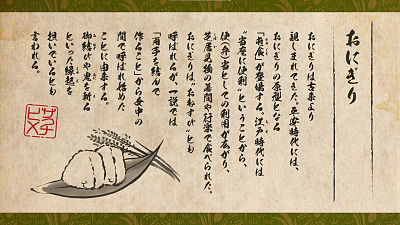 おにぎり
おにぎりは古来より
親しまれてきた。平安時代には、
おにぎりの原型となる
「屯食」が登場する。江戸時代には
"当座に便利"ということから、
便(弁)当としての利用が広がり、
芝居見物の幕間や行楽で食べられた。
おにぎりは"おむすび"とも
呼ばれるが、一説では
「両手を結んで
作ること」から女中の
間で呼ばれ始めた
ことに由来する。
物結びや鬼を斬る
といった縁起を
担いでいるとも
言われる。
サクナ
ヒメ